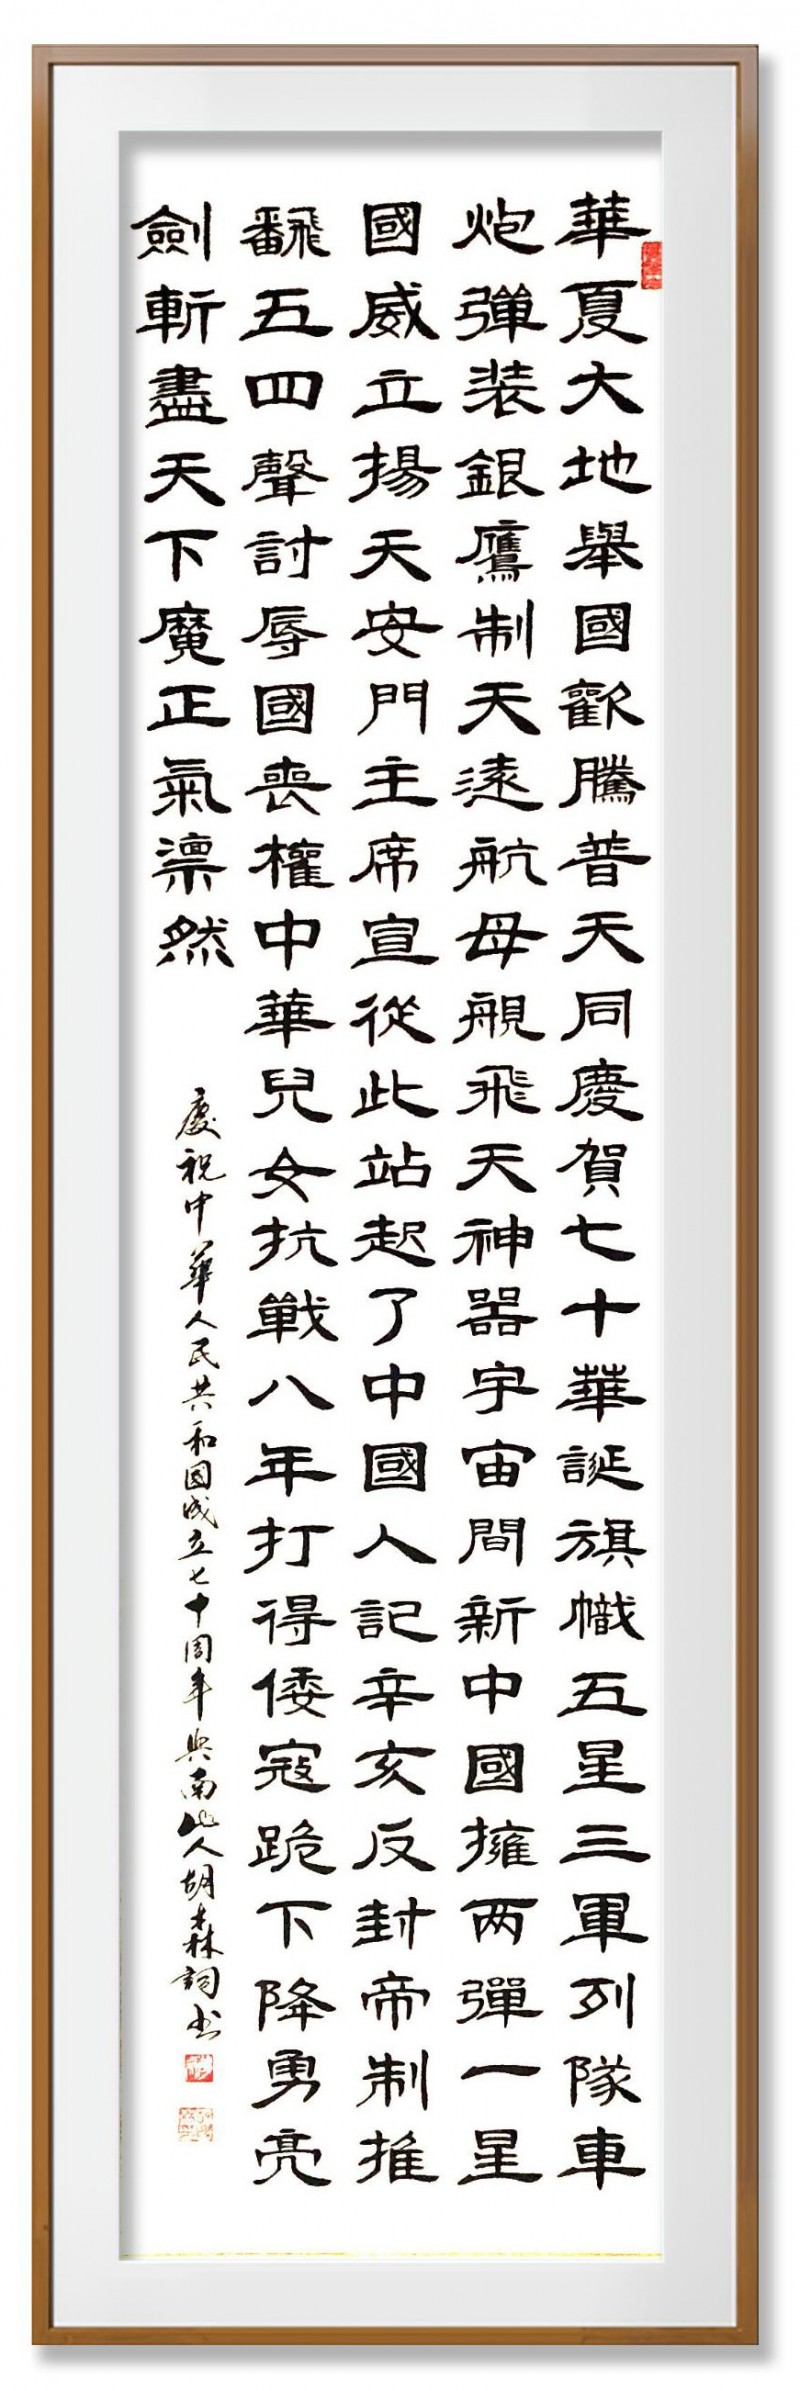 華夏大地舉國歡騰普天同慶賀七十華誕旗幟五星三軍列隊車
炮彈装銀鷹制天遠航母艦飛天神器宇宙間新中國擁两彈一星
國威立揚天安門主席宣從此站起了中國人記辛亥反封帝制推
翻五四聲討辱國喪權中華兒女抗戰八年打得倭寇跪下降勇亮
劍斬盡天下魔正氣凛然
慶祝中華人民共和国成立七十周年 南山人胡森詞书